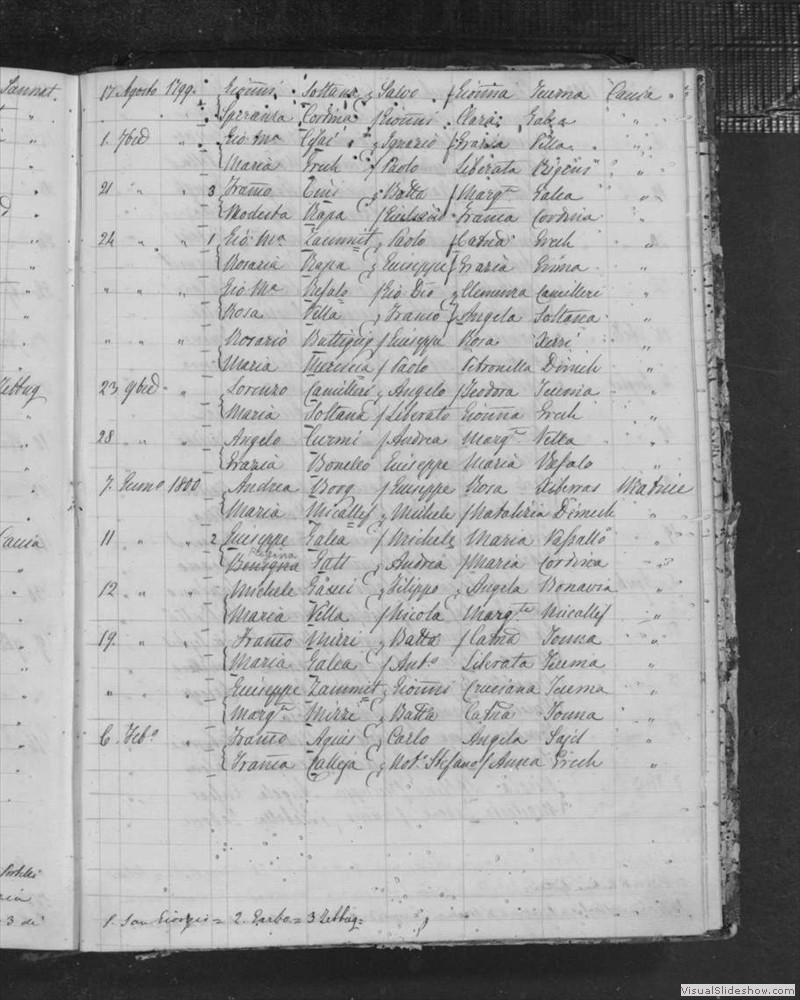 Sannat.
17 Agosto 1799. Gioñni Soltana Salvo Gioñna Teuma Causa
Speranza Cordina Gioñni Clara Galea "
1. 7bre " Gio Mª Ignazio Grazia Villa "
Maria Grech Paolo Liberata "
21 " " 3 Franco Batta Margta Galea "
Modesta Rapa Franca Cordina "
24 " " 1 Gio Mª Zammit Paolo Catna Grech "
Rosaria Rapa Giuseppe Grazia "
" " " Gio Mª Refalo Gio Dio Clemenza Camilleri "
Rosa Villa Franco Angela Soltana "
" " " Rosario Buttigieg Giuseppe Rosa Xerri "
Maria Mercieca Paolo Petronilla Dimech "
Zebbug 23 9bre " Lorenzo Camilleri Angelo Teodora Teuma "
Maria Soltana Liberato Gionna Grech "
28 " " Angelo Curmi Andrea Margta Vella "
Grazia Bonello Giuseppe Maria Refalo "
7. Genno 1800 Andrea Borg Giuseppe Rosa Xiberras Matrice
Maria Micallef Michele Natalizia Dimech "
11 " " 2 Giuseppe Galea Michele Maria Vassallo "
Regina
Benigna Gatt Andrea Maria Cordina "
12 " " Michele Filippo Angela Bonavia "
Maria Vella Nicola Margta Micallef "
19. " " Franco Mizzi Batta Catna "
Maria Galea Anto Liberata Teuma "
" Giuseppe Zammit Gioñni Teuma "
Margta Mizzi Batta Catna "
6 Febo " Franco Agius Carlo Angela "
Franca Calleja Notr Stefano Anna Grech "
1. San Giorgio = 2. Garbo = 3 Zebbug =